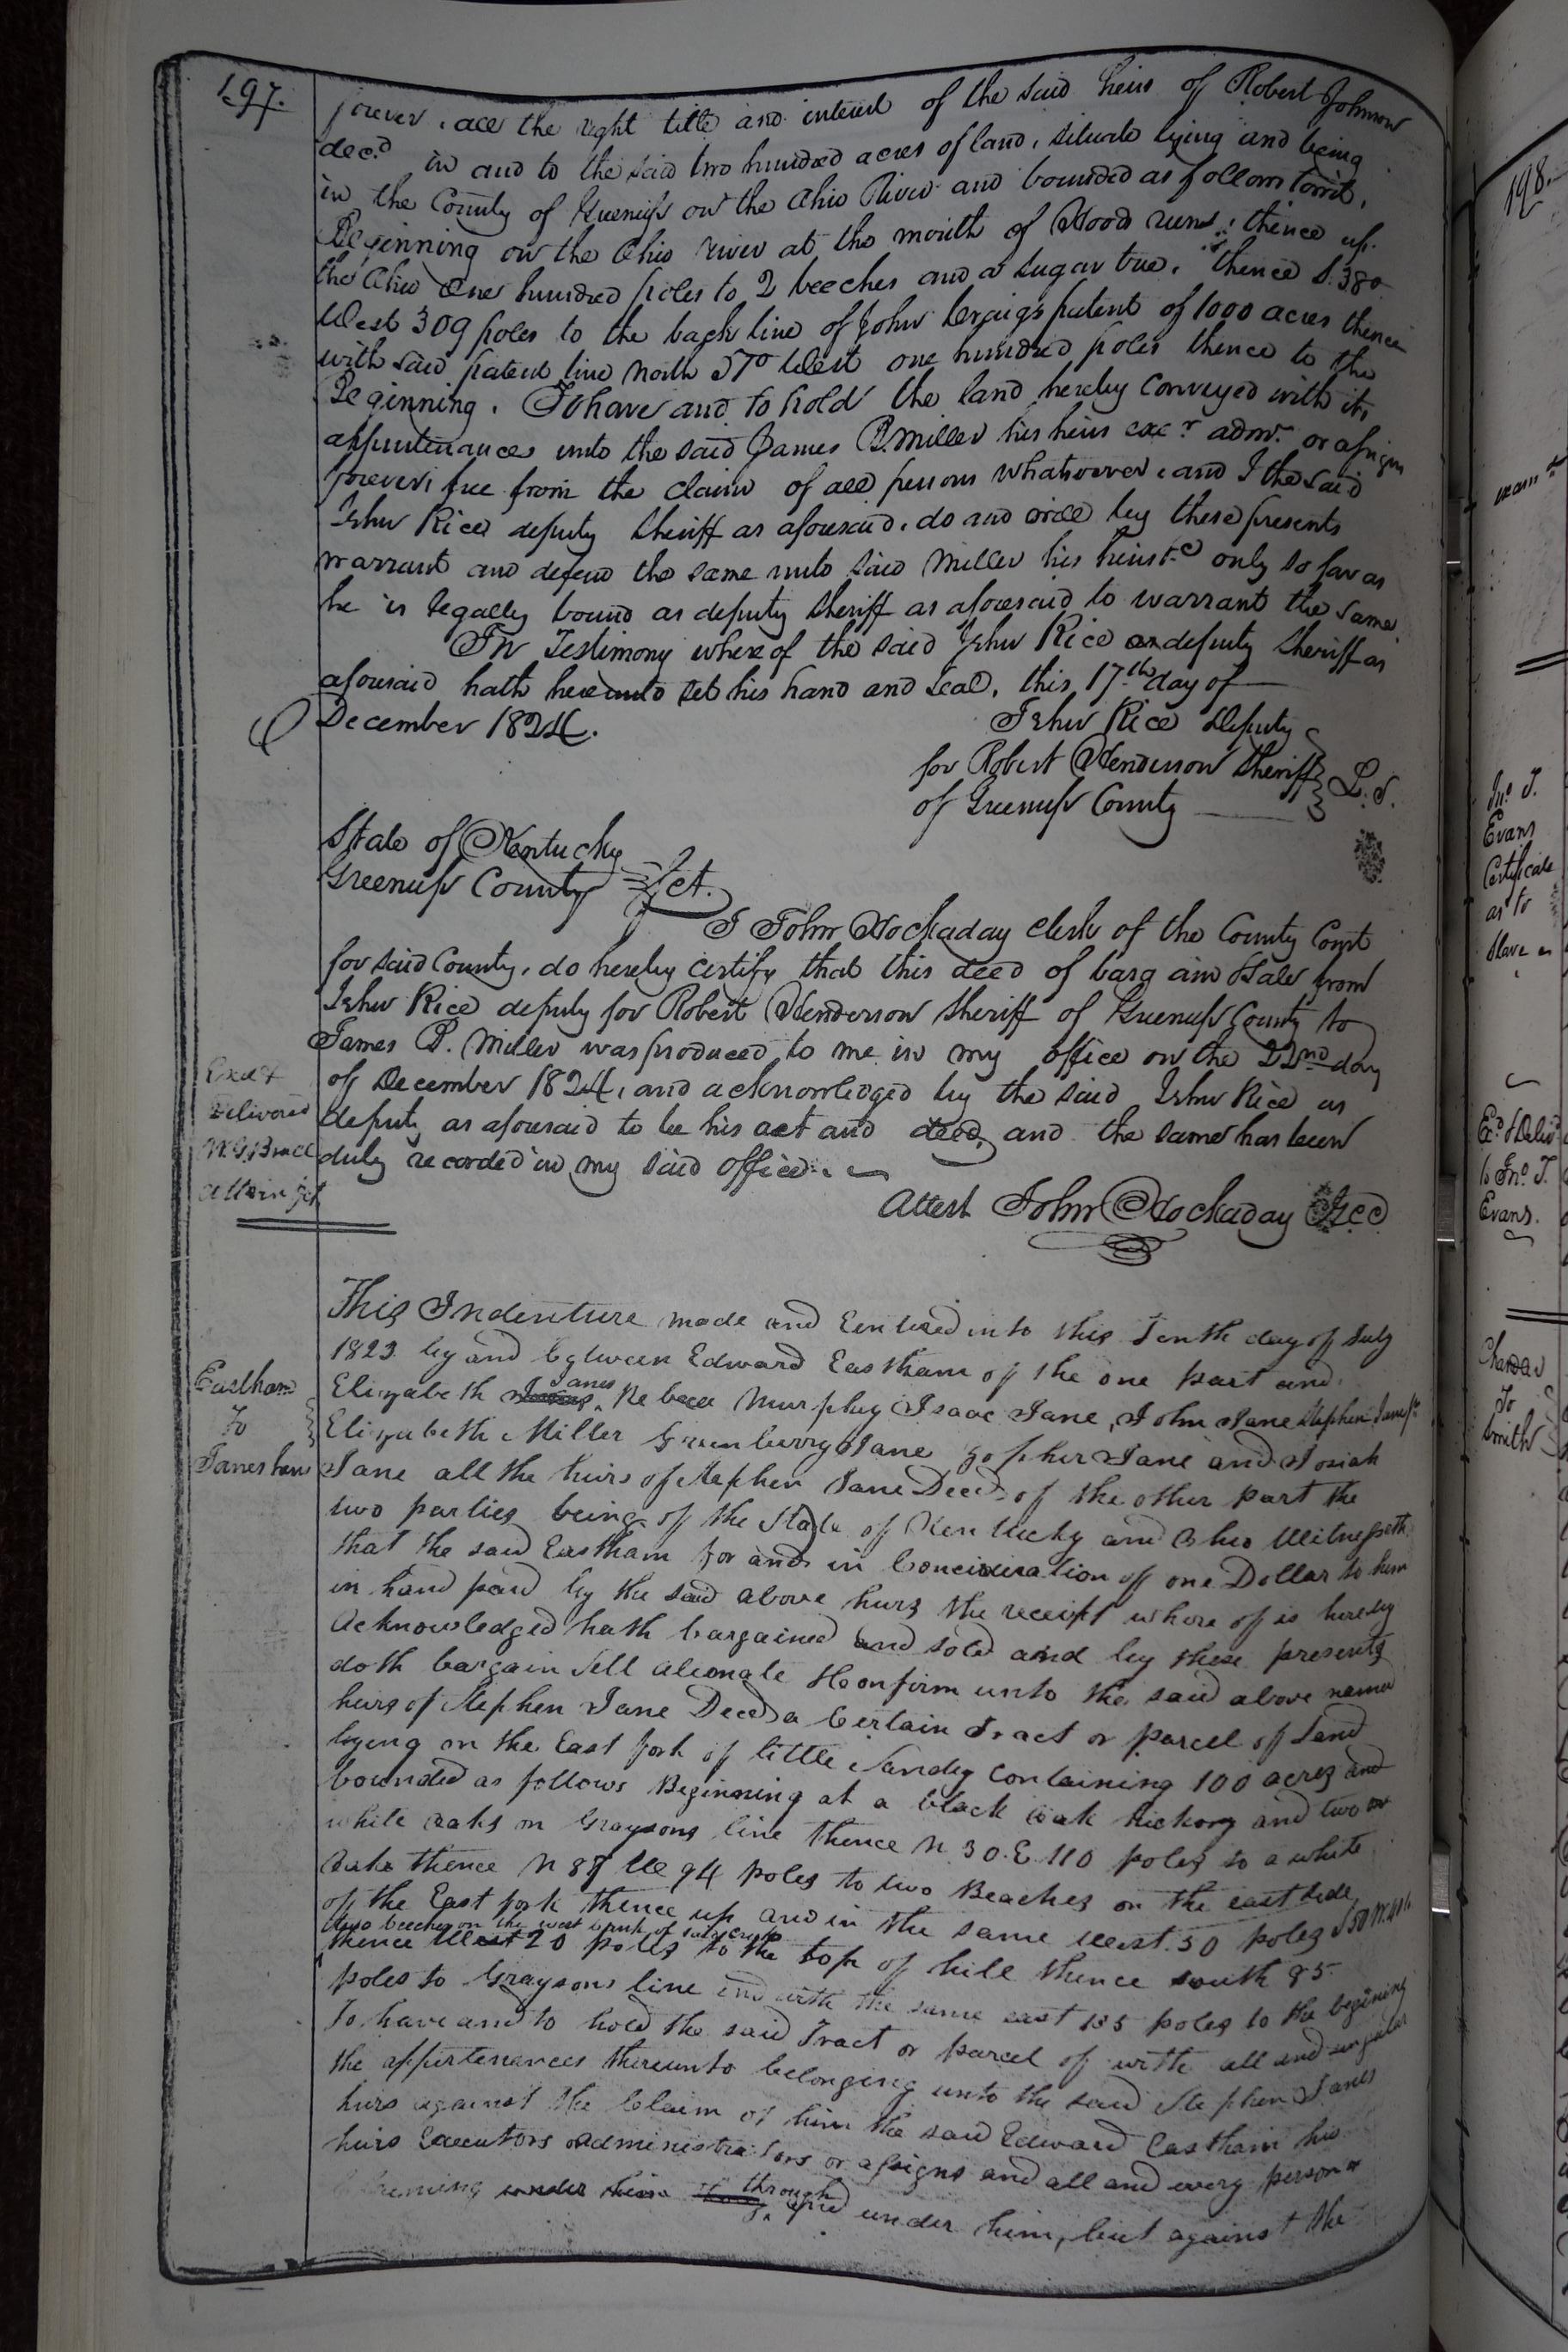 197.
forever, all the right title and interest of the said heirs of Robert Johnson
decd in and to the said two hundred acres of land, situate lying and being
in the County of Greenup on the Ohio River and bounded as follows towit,
Beginning on the Ohio river at the mouth of Wood runs, thence up
the Ohio One hundred poles to 2 beeches and a sugar tree, thence S. 38o
West 309 poles to the back line of John Craigs patent of 1000 acres thence
with said patent line North 57o West one hundred poles thence to the
Beginning. To have and to hold the land hereby conveyed with its
appurtenances unto the said James B. Miller his heirs excr admr or assigns
forever, free from the claim of all persons whatsoever, and I the said
John Rice deputy Sheriff as aforesaid, do and will by these presents
warrant and defend the same unto said Miller his heirs &c only so far as
he is legally bound as deputy Sheriff as aforesaid to warrant the same
In Testimony whereof the said John Rice as deputy Sheriff as
aforesaid hath hereunto set his hand and seal, this 17th day of
December 1824.
John Rice Deputy
for Robert Henderson Sheriff
of Greenup County
L.S.
State of Kentucky
Greenup County Sct.
I John Hockaday Clerk of the County Court
for said County, do hereby certify that this deed of bargain & Sale from
John Rice deputy for Robert Henderson Sheriff of Greenup County to
James B. Miller was produced to me in my office on the 22nd day
of December 1824, and acknowledged by the said John Rice as
deputy as aforesaid to be his act and deed, and the same has been
duly recorded in my said office.
Exd &
Delivered
Attest John Hockaday GCC
This Indenture made and Entered into this Tenth day of July
1823 by and between Edward Eastham of the one part and
Elizabeth Janes Rebeca Murphy Isaac Jane, John Jane Stephen Jane
Elizabeth Miller Greenberry Jane Zopher Jane and Josiah
Jane all the heirs of Stephen Jane Decd of the other part the
two parties being of the State of Kentucky and Ohio Witnesseth
that the said Eastham for and in Concideration of one Dollar to him
in hand paid by the said above hurs the receipt where of is hereby
Acknowledged hath bargained and sold and by these presents
doth bargain Sell alienate & Confirm unto the said above named
hurs of Stephen Jane Decd a Certain Tract or parcel of Land
lying on the East fork of little Sandy Containing 100 acres and
bounded as follows Beginning at a black oak hickory and two
white oaks on Graysons line thence N 30. E. 110 poles to a white
Oake thence N 88 W 94 poles to two Beaches on the east side
of the East fork thence up and in the same West. 50 poles
two beeches on the west bank of said creek
thence West 20 poles to the top of hill thence south 85
poles to Graysons line and with the same east 185 poles to the begining
To have and to hold the said Tract or parcel of with all and singular
the appurtenances thereunto belonging unto the said Stephen Janes
hurs against the Claim of him the said Edward Eastham his
hurs Executors administrators or assigns and all and every person or
under him through and under him, but against the
Eastham
To
Janes heirs
198.
Jno. T.
Evans
Certificate
as to
Slave
Exd & Delivd
to Jno. T.
Evans.
To
Smith